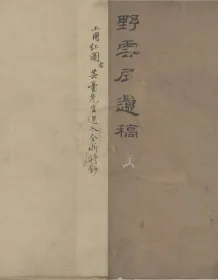 野雲居遺稿
上用红圈者 先生選入全浙詩鈔